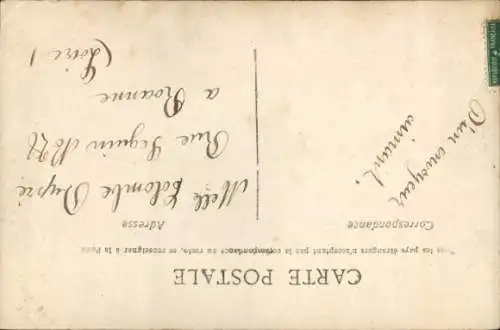 CARTE POSTALE
Tous les pays étrangers n'acceptant pas la correspondance au recto, se renseigner à la Poste
Correspondance
D'un envoyeur
aimant.
Adresse
Melle Colombe Dupré
Rue Seguin No 22
à Roanne
(Loire)